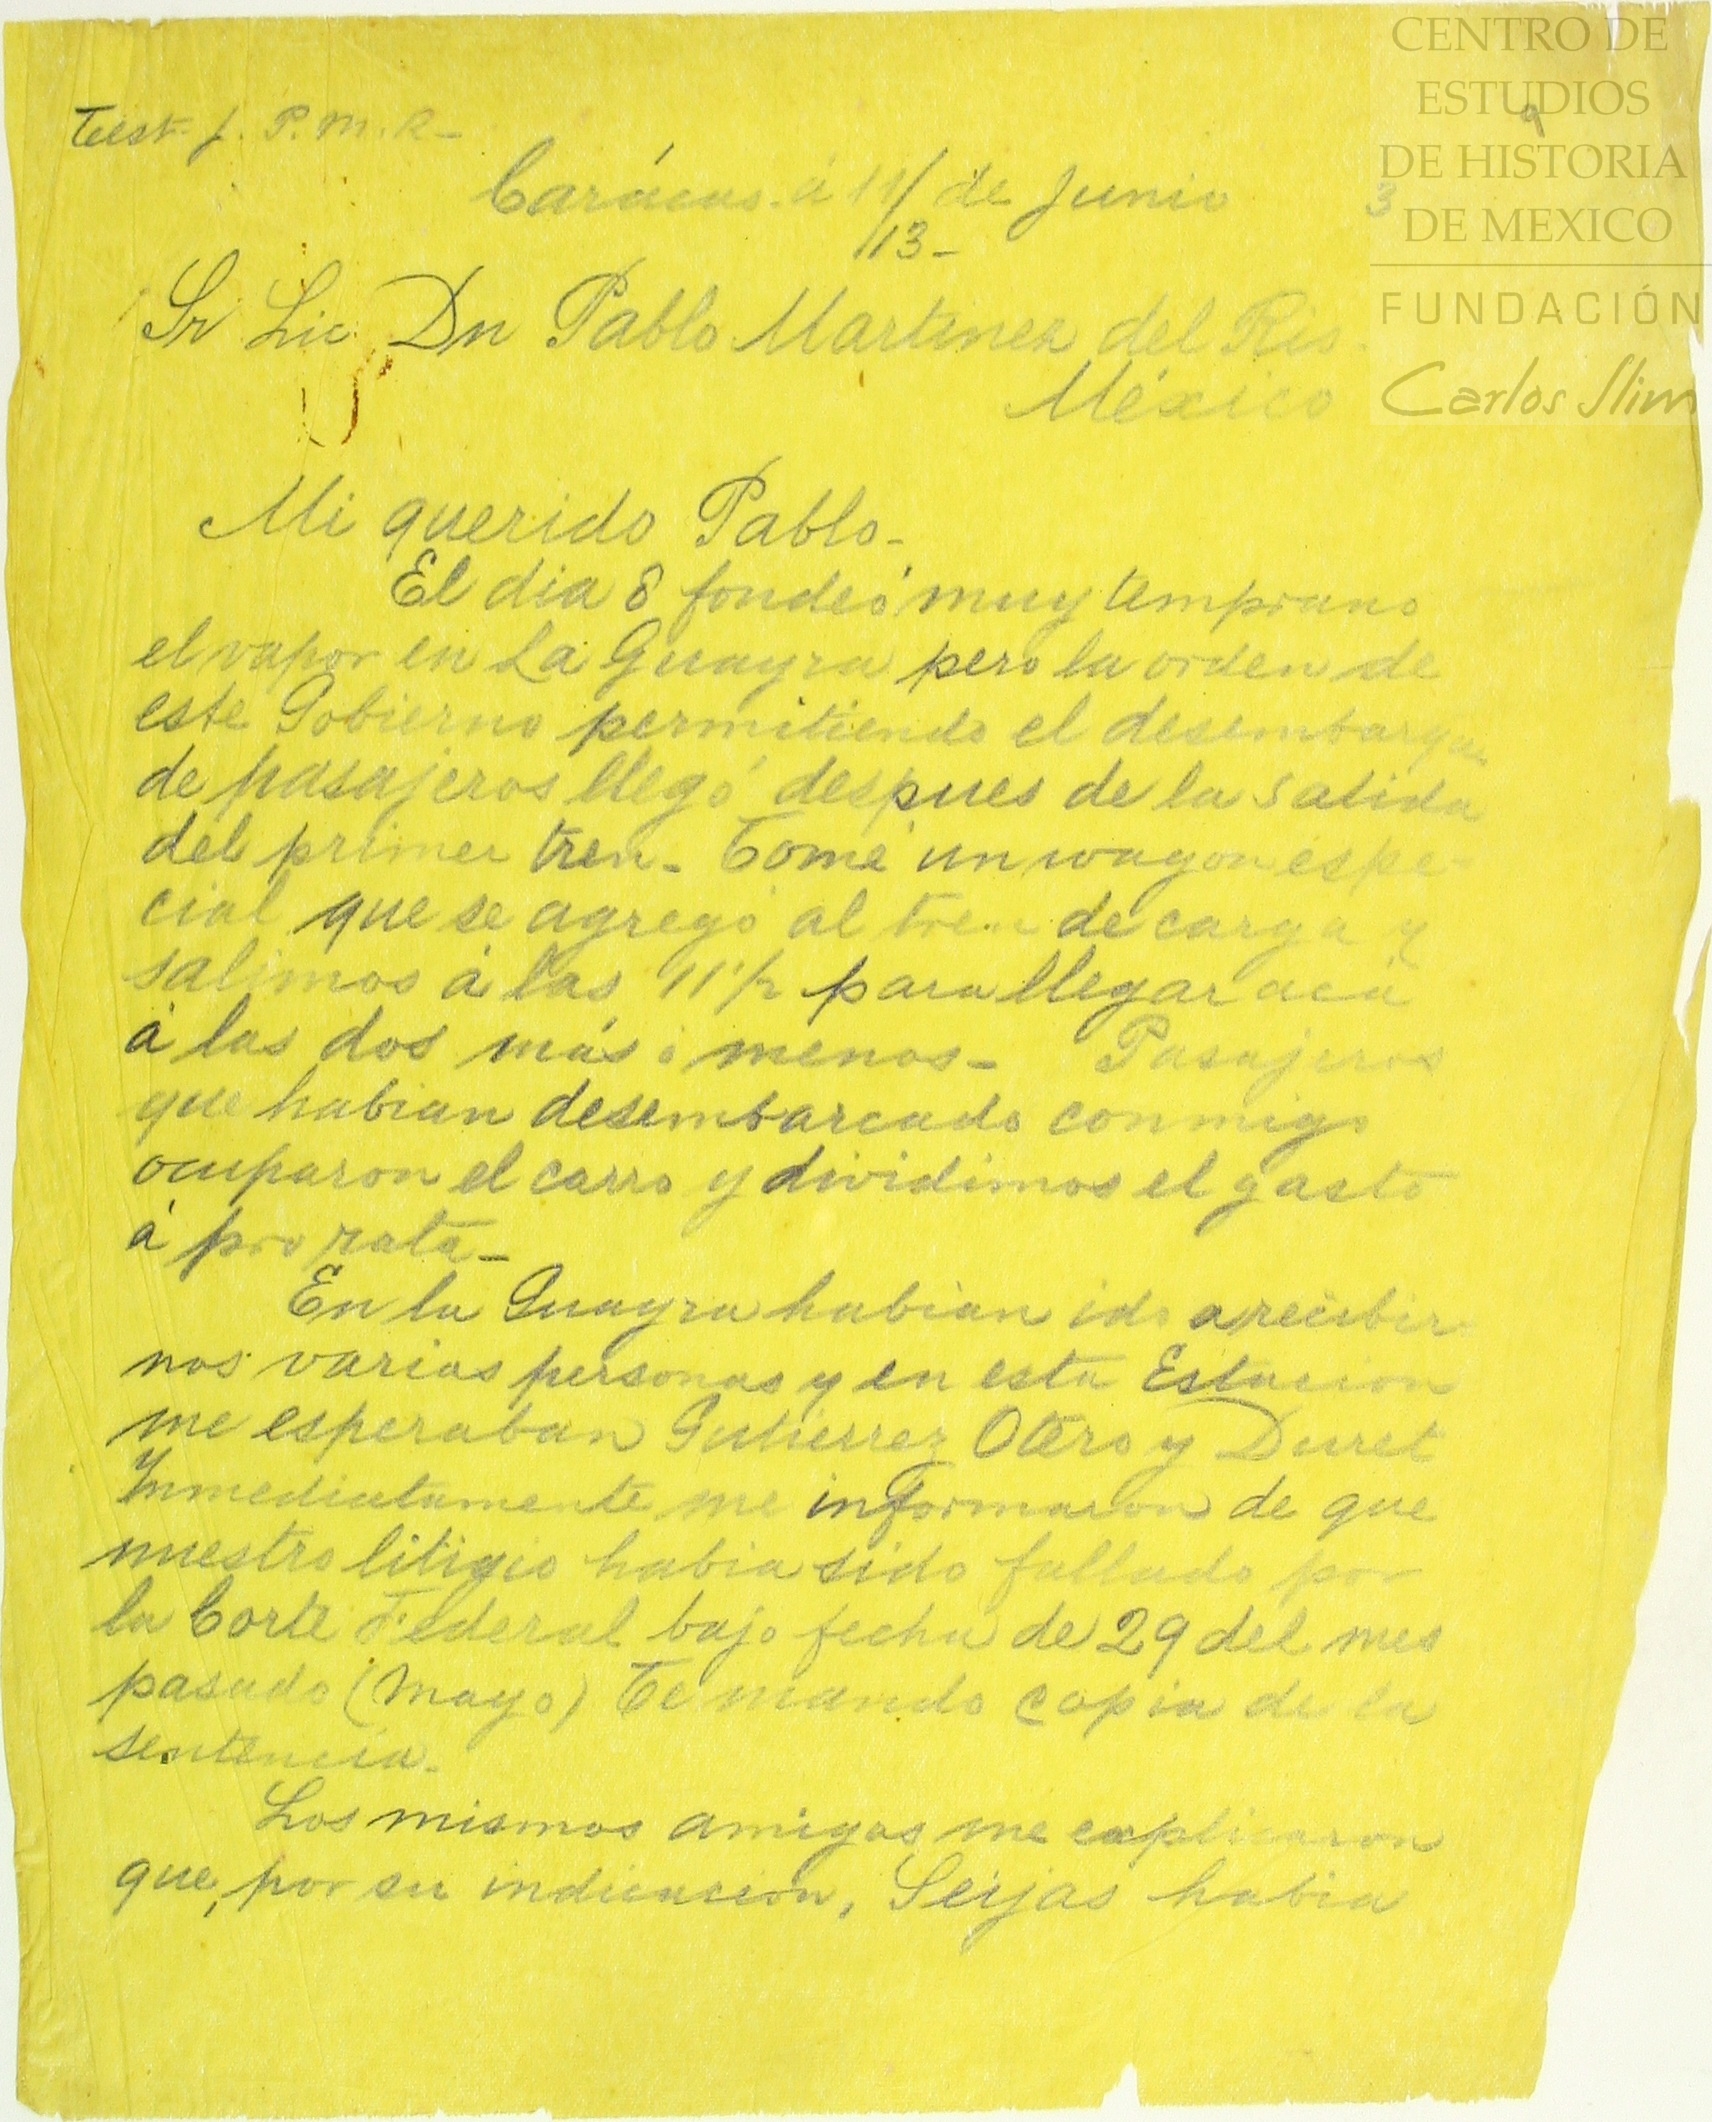 CENTRO DE
ESTUDIOS
DE HISTORIA
DE MEXICO
FUNDACIÓN
Carlos Slim
9
3
Test. f. P. M. R-
Carácas. á 11/13- de Junio
Sr Lic. Dn Pablo Martinez del Rio.
México
Mi querido Pablo-
El dia 8 fondeó muy temprano
el vapor en La Guayra pero la orden de
este Gobierno permitiendo el desembarque
de pasajeros llegó despues de la salida
del primer tren- Tomé un wagon espe-
cial que se agregó al tren de carga y
salimos á las 11 1/2 para llegar acá
á las dos más ó menos- Pasajeros
que habian desembarcado conmigo
ocuparon el carro y dividimos el gasto
á pro rata-
En la Guayra habian ido a recibir
nos varias personas y en esta Estacion
me esperaban Gutierrez Otero y Duret
Inmediatamente me informaron de que
nuestro litigio habia sido fallado por
la Corte Federal bajo fecha de 29 del mes
pasado (Mayo) Te mando copia de la
sentencia-
Los mismos amigos me explicaron
que, por su indicacion, Seijas habia